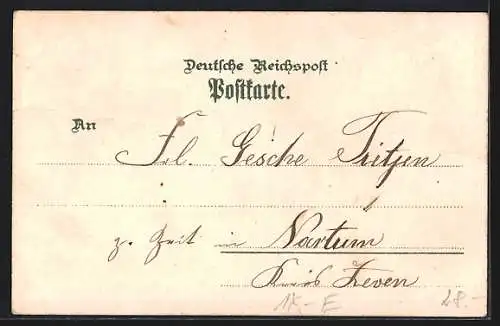 Deutsche Reichspost
Postkarte.
An
Frl. Gesche Tietjen
z. Zeit in Nartum
Kreis Zeven
18.-